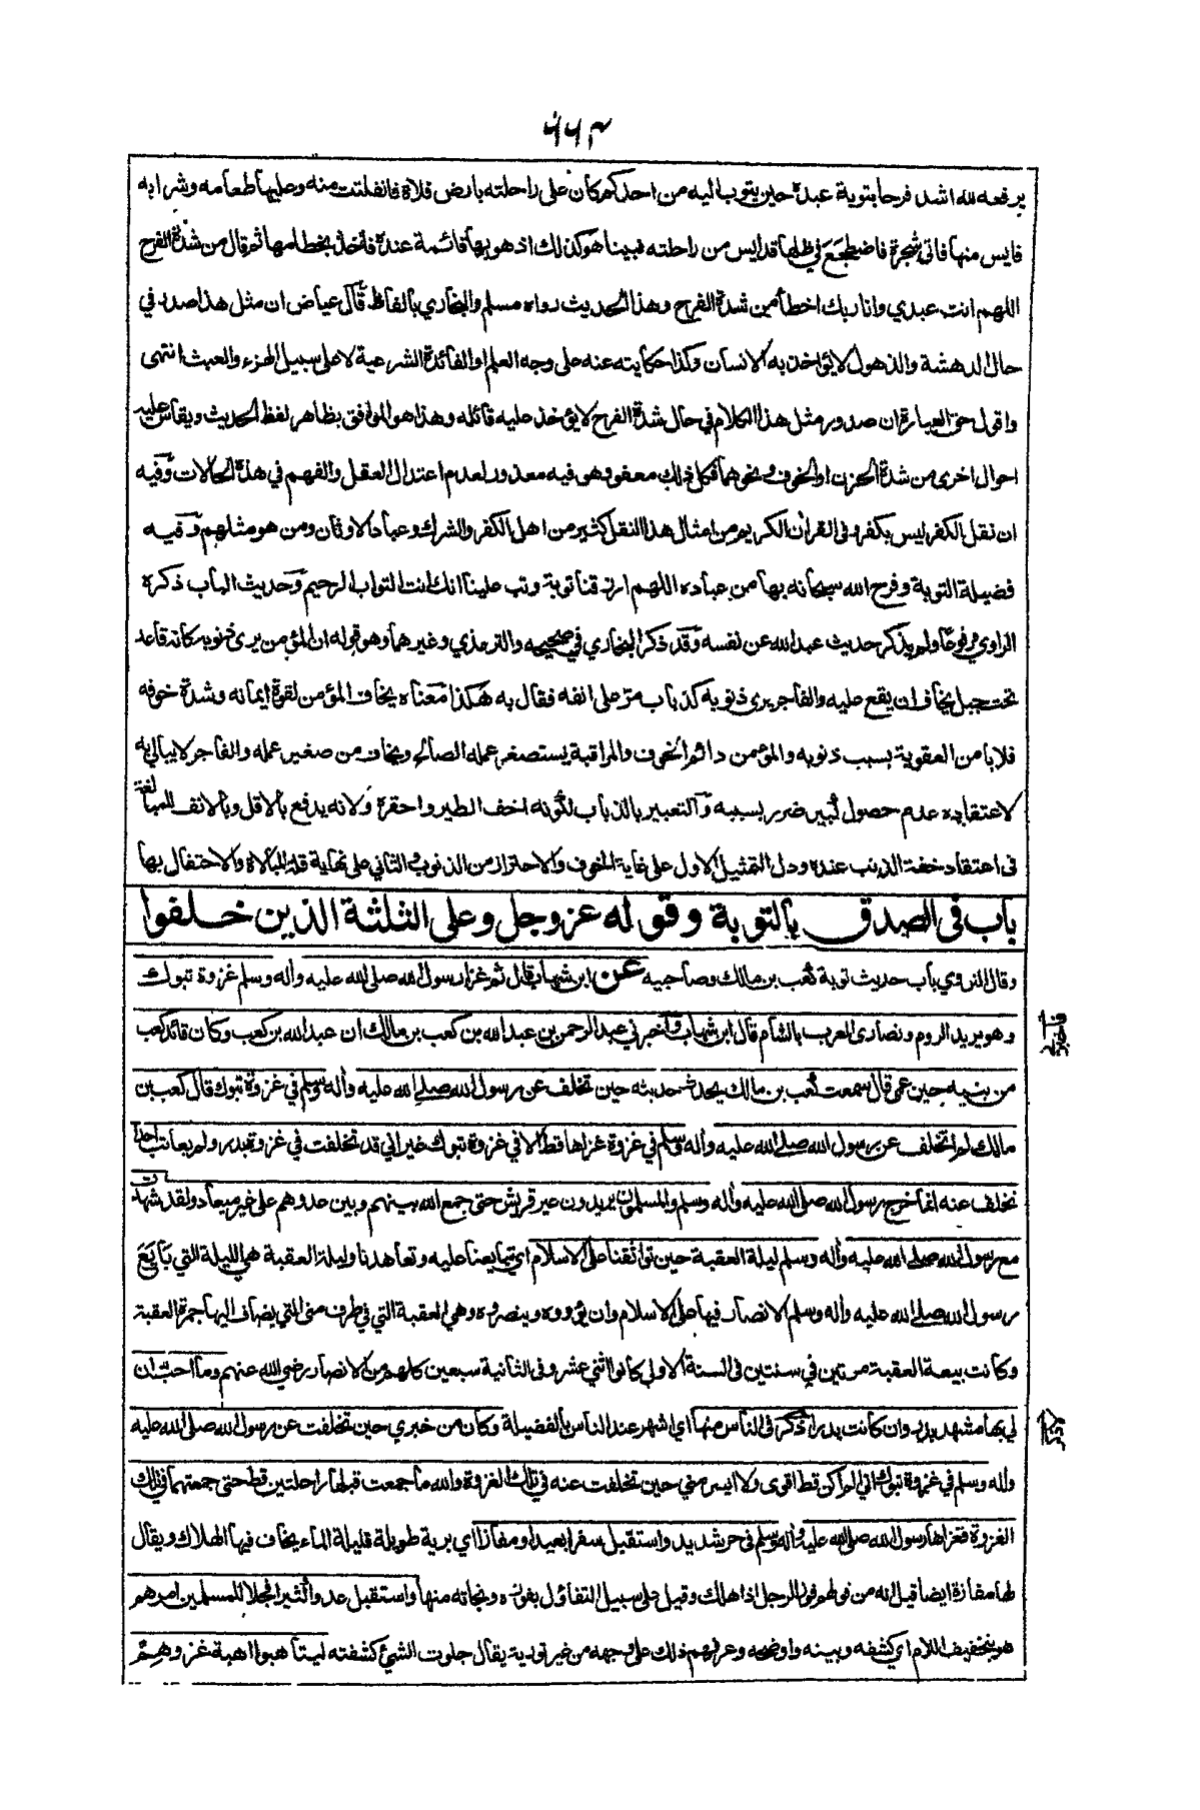 ٦٦٣
يرفعه لله اشد فرحا بتوبة عبده حين يتوب اليه من احدكم كان على راحلته بارض فلاة فانفلتت منه وعليها طعامه وشرابه
فايس منها فاتى شجرة فاضطجع في ظلها قد ايس من راحلته فبينا هو كذلك اذ هو بها قائمة عنده فأخذ بخطامها ثم قال من شدة الفرح
اللهم انت عبدي وانا ربك اخطأ من شدة الفرح وهذا الحديث رواه مسلم والبخاري بألفاظ قال عياض ان مثل هذا صدر في
حال الدهشة والذهول لا يؤاخذ به الانسان وكذا حكايته عنه على وجه العلم او الفائدة الشرعية لا على سبيل الهزء والعبث انتهى
واقول حق العبارة ان صدور مثل هذا الكلام في حال شدة الفرح لا يؤخذ عليه قائله وهذا هو الموافق بظاهر لفظ الحديث ويقاس عليه
احوال اخرى من شدة الحزن او الخوف ونحوهما فكل ذلك معفو وهو فيه معذور لعدم اعتدال العقل والفهم في هذة الحالات وفيه
ان نقل الكفر ليس بكفر وفى القرأن الكريم من امثال هذا النقل كثير من اهل الكفر والشرك وعباد الاوثان ومن هو مثلهم وفيه
فضيلة التوبة وفرح الله سبحانه بها من عباده اللهم ارزقنا توبة وتب علينا انك انت التواب الرحيم وحديث الباب ذكره
الراوي مرفوعا ولم يذكر حديث عبد الله عن نفسه وقد ذكره البخاري في صحيحه والترمذي وغيرهما وهو قوله ان المؤمن يرى ذنوبه كانه قاعد
تحت جبل يخاف ان يقع عليه والفاجر يرى ذنوبه كذباب مر على انفه فقال به هكذا معناه يخاف المؤمن لقوة ايمانه وشدة خوفه
فلا يامن العقوبة بسبب ذنوبه والمؤمن دائم الخوف والمراقبة يستصغر عمله الصالح ويخاف من صغير عمله والفاجر لا يبالي به
لاعتقاده عدم حصول كبير ضرر بسببه والتعبير بالذباب لكونه اخف الطير واحقره ولانه يدفع بالاقل وبالانف للمبالغة
فى اعتقاد خفة الذنب عنده ودل التمثيل الاول على غاية الخوف والاحتراز من الذنوب والثاني على نهاية قلة المبالاة والاحتفال بها
باب فى الصدق بالتوبة وقوله عز وجل وعلى الثلثة الذين خلفوا
وقال النووي باب حديث توبة كعب بن مالك وصاحبيه عن ابن شهاب قال ثم غزا رسول الله صلى الله عليه وأله وسلم غزوة تبوك
وهو يريد الروم ونصارى العرب بالشأم قال ابن شهاب واخبرني عبد الرحمن بن عبد الله بن كعب بن مالك ان عبد الله بن كعب وكان قائد كعب
من بنيه حين عمى قال سمعت كعب بن مالك يحدث حديثه حين تخلف عن رسول الله صلى الله عليه وأله وسلم في غزوة تبوك قال كعب بن
مالك لم اتخلف عن رسول الله صلى الله عليه وأله وسلم في غزوة غزاها قط الا في غزوة تبوك غير اني قد تخلفت في غزوة بدر ولم يعاتب احدا
تخلف عنه انما خرج رسول الله صلى الله عليه وأله وسلم والمسلمون يريدون عير قريش حتى جمع الله بينهم وبين عدوهم على غير ميعاد ولقد شهدت
مع رسول الله صلى الله عليه وأله وسلم ليلة العقبة حين تواثقنا على الاسلام اي تبايعنا عليه وتعاهدنا وليلة العقبة هي الليلة التي بايع
رسول الله صلى الله عليه واله وسلم الانصار فيها على الاسلام وان يؤووه وينصروه وهي العقبة التي في طرف منى التي يضاف اليها جمرة العقبة
وكانت بيعة العقبة مرتين في سنتين فى السنة الاولى كانوا اثني عشر وفى الثانية سبعين كلهم من الانصار رضي الله عنهم وما احب ان
لي بها مشهد بدر وان كانت بدر اذكر فى الناس منها اي اشهر عند الناس بالفضيلة وكان من خبري حين تخلفت عن رسول الله صلى الله عليه
وأله وسلم في غزوة تبوك اني لم اكن قط اقوى ولا ايسر مني حين تخلفت عنه في تلك الغزوة والله ما جمعت قبلها راحلتين قط حتى جمعتهما في تلك
الغزوة فغزاها رسول الله صلى الله عليه وأله وسلم فى حر شديد واستقبل سفرا بعيدا ومفازا اي برية طويلة قليلة الماء يخاف فيها الهلاك ويقال
لها مفازة ايضا قيل انه من قولهم فوز الرجل اذا هلك وقيل على سبيل التفاؤل بفوزه ونجاته منها واستقبل عدوا كثيرا فجلا للمسلمين امرهم
هو بتخفيف اللام اي كشفه وبينه واوضحه وعرفهم ذلك على وجهه من غير تورية يقال جلوت الشئ كشفته ليتأهبوا اهبة غزوهم